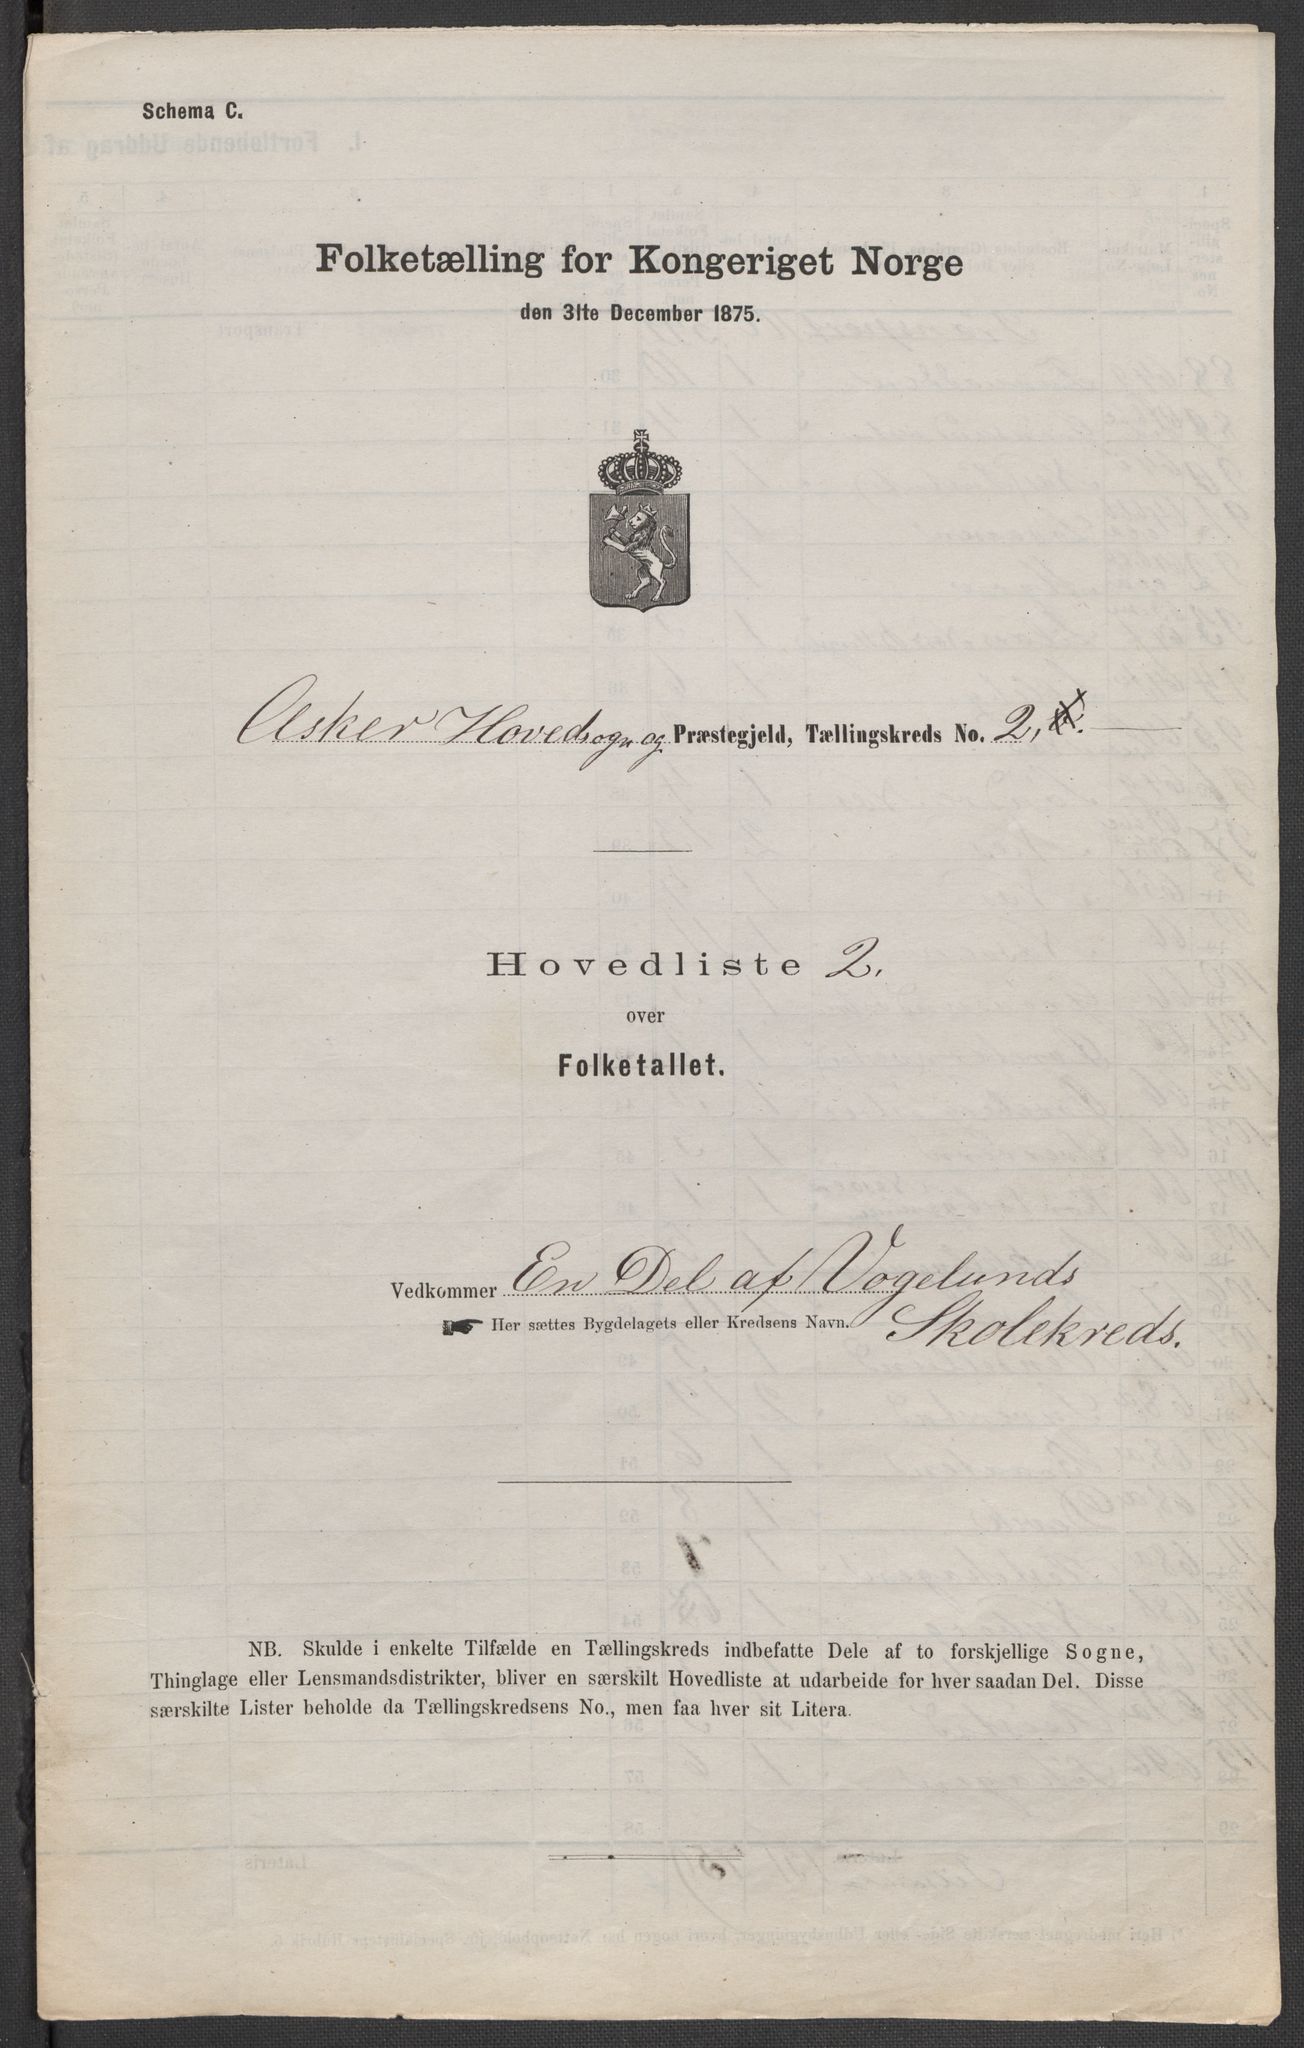 Schema C.
Folketælling for Kongeriget Norge
den 31te December 1875.
Asker Hovedsogn og Præstegjeld, Tællingskreds No. 2,
Hovedliste 2.
over
Folketallet.
Vedkommer En Del af Vogelunds
Her sættes Bygdelagets eller Kredsens Navn. Skolekreds.
NB. Skulde i enkelte Tilfælde en Tællingskreds indbefatte Dele af to forskjellige Sogne,
Thinglage eller Lensmandsdistrikter, bliver en særskilt Hovedliste at udarbeide for hver saadan Del. Disse
særskilte Lister beholde da Tællingskredsens No., men faa hver sit Litera.